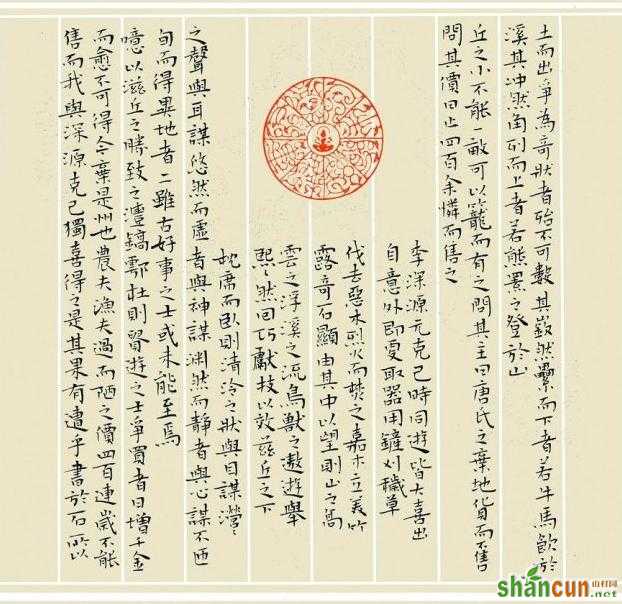 土而出爭為奇狀者殆不可數其嶔然纍而下者若牛馬飲於
溪其沖然角列而上者若熊羆之登於山
丘之小不能一畝可以籠而有之問其主曰唐氏之棄地貨而不售
問其價曰止四百余憐而售之
李深源元克己時同遊皆大喜出
自意外即更取器用鏟刈穢草
伐去惡木烈火而焚之嘉木立美竹
露奇石顯由其中以望則山之高
雲之浮溪之流鳥獸之遨遊舉
熙々然回巧獻技以效茲丘之下
枕席而臥則清泠之狀與目謀瀯々
之聲與耳謀悠然而虛者與神謀淵然而靜者與心謀不匝
旬而得異地者二雖古好事之士或未能至焉
噫以茲丘之勝致之灃鎬鄠杜則貴遊之士爭買者日增千金
而愈不可得今棄是州也農夫漁夫過而陋之價四百連歲不能
售而我與深源克己獨喜得之是其果有遭乎書於石所以
shancun 山村网
.net